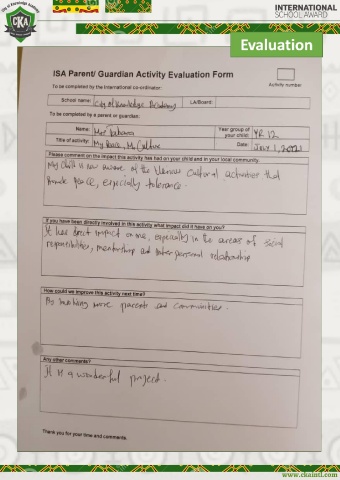 City of Knowledge Academy
CKA
INTERNATIONAL
SCHOOL AWARD
Evaluation
ISA Parent/ Guardian Activity Evaluation Form
Activity number
To be completed by the International co-ordinator:
School name: City of Knowledge Academy LA/Board:
To be completed by a parent or guardian:
Name: Mrs Year group of your child: YR 12
Title of activity: My Peace, My Culture Date: July 1, 2021
Please comment on the impact this activity has had on your child and in your local community.
My child is now aware of the Various Cultural activities that
peace, especially tolerance.
If you have been directly involved in this activity what impact did it have on you?
It has direct impact on me, especially in the areas of social
responsibilities, mentorship and interpersonal relationship
How could we improve this activity next time?
By Involving more parents and communities.
Any other comments?
It is a wonderful project.
Thank you for your time and comments.
www.ckaintl.com